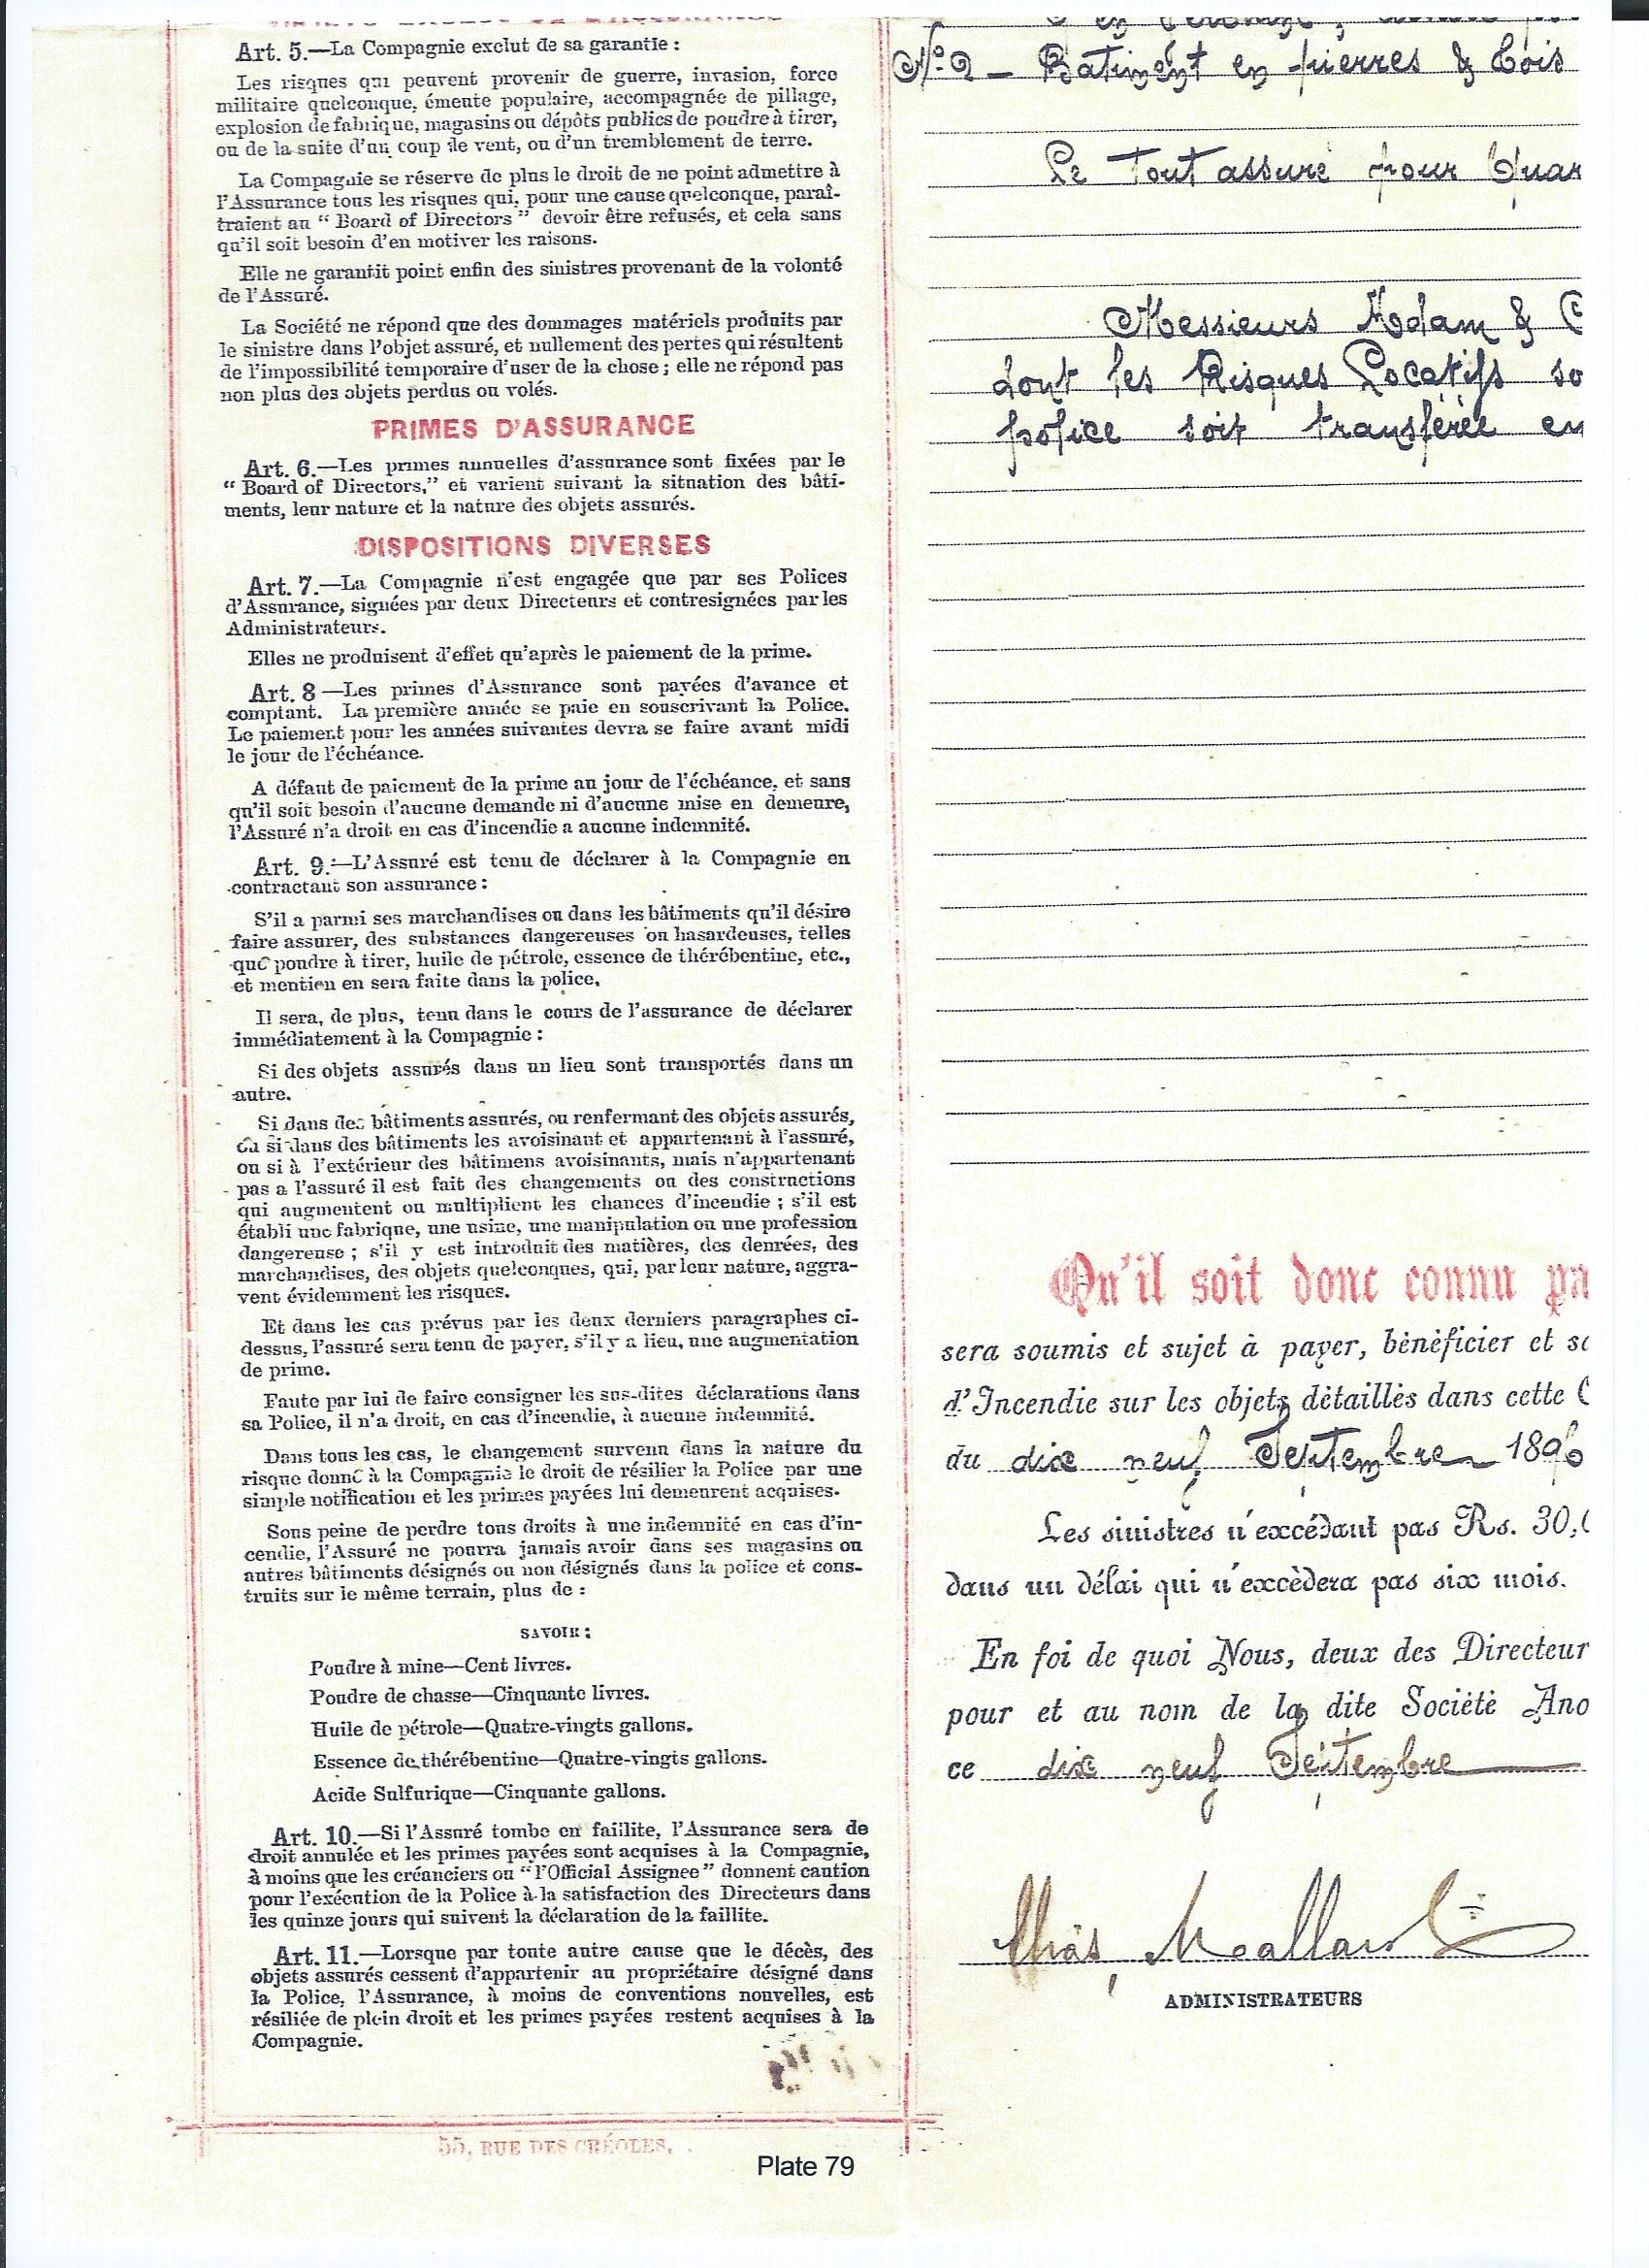 Art. 5.—La Compagnie exclut de sa garantie :
Les risques qui peuvent provenir de guerre, invasion, force
militaire quelconque, émeute populaire, accompagnée de pillage,
explosion de fabrique, magasins ou dépôts publics de poudre à tirer,
ou de la suite d'un coup de vent, ou d'un tremblement de terre.
La Compagnie se réserve de plus le droit de ne point admettre à
l'Assurance tous les risques qui, pour une cause quelconque, paraî-
traient au “ Board of Directors ” devoir être refusés, et cela sans
qu'il soit besoin d'en motiver les raisons.
Elle ne garantit point enfin des sinistres provenant de la volonté
de l'Assuré.
La Société ne répond que des dommages matériels produits par
le sinistre dans l'objet assuré, et nullement des pertes qui résultent
de l'impossibilité temporaire d'user de la chose ; elle ne répond pas
non plus des objets perdus ou volés.
PRIMES D'ASSURANCE
Art. 6.—Les primes annuelles d'assurance sont fixées par le
“ Board of Directors,” et varient suivant la situation des bâti-
ments, leur nature et la nature des objets assurés.
DISPOSITIONS DIVERSES
Art. 7.—La Compagnie n'est engagée que par ses Polices
d'Assurance, signées par deux Directeurs et contresignées par les
Administrateurs.
Elles ne produisent d'effet qu'après le paiement de la prime.
Art. 8—Les primes d'Assurance sont payées d'avance et
comptant. La première année se paie en souscrivant la Police.
Le paiement pour les années suivantes devra se faire avant midi
le jour de l'échéance.
A défaut de paiement de la prime au jour de l'échéance, et sans
qu'il soit besoin d'aucune demande ni d'aucune mise en demeure,
l'Assuré n'a droit en cas d'incendie a aucune indemnité.
Art. 9.—L'Assuré est tenu de déclarer à la Compagnie en
contractant son assurance :
S'il a parmi ses marchandises ou dans les bâtiments qu'il désire
faire assurer, des substances dangereuses ou hasardeuses, telles
que poudre à tirer, huile de pétrole, essence de thérébentine, etc.,
et mention en sera faite dans la police.
Il sera, de plus, tenu dans le cours de l'assurance de déclarer
immédiatement à la Compagnie :
Si des objets assurés dans un lieu sont transportés dans un
autre.
Si dans des bâtiments assurés, ou renfermant des objets assurés,
ou si dans des bâtiments les avoisinant et appartenant à l'assuré,
ou si à l'extérieur des bâtimens avoisinants, mais n'appartenant
pas a l'assuré il est fait des changements ou des constructions
qui augmentent ou multiplient les chances d'incendie ; s'il est
établi une fabrique, une usine, une manipulation ou une profession
dangereuse ; s'il y est introduit des matières, des denrées, des
marchandises, des objets quelconques, qui, par leur nature, aggra-
vent évidemment les risques.
Et dans les cas prévus par les deux derniers paragraphes ci-
dessus, l'assuré sera tenu de payer, s'il y a lieu, une augmentation
de prime.
Faute par lui de faire consigner les sus-dites déclarations dans
sa Police, il n'a droit, en cas d'incendie, à aucune indemnité.
Dans tous les cas, le changement survenu dans la nature du
risque donne à la Compagnie le droit de résilier la Police par une
simple notification et les primes payées lui demeurent acquises.
Sous peine de perdre tous droits à une indemnité en cas d'in-
cendie, l'Assuré ne pourra jamais avoir dans ses magasins ou
autres bâtiments désignés ou non désignés dans la police et cons-
truits sur le même terrain, plus de :
SAVOIR :
Poudre à mine—Cent livres.
Poudre de chasse—Cinquante livres.
Huile de pétrole—Quatre-vingts gallons.
Essence de thérébentine—Quatre-vingts gallons.
Acide Sulfurique—Cinquante gallons.
Art. 10.—Si l'Assuré tombe en faillite, l'Assurance sera de
droit annulée et les primes payées sont acquises à la Compagnie,
à moins que les créanciers ou “ l'Official Assignee ” donnent caution
pour l'exécution de la Police à la satisfaction des Directeurs dans
les quinze jours qui suivent la déclaration de la faillite.
Art. 11.—Lorsque par toute autre cause que le décès, des
objets assurés cessent d'appartenir au propriétaire désigné dans
la Police, l'Assurance, à moins de conventions nouvelles, est
résiliée de plein droit et les primes payées restent acquises à la
Compagnie.
55, RUE DES CRÉOLES.
Nº 2 — Batiment en pierres & bois
Le Tout assuré pour Quar
Messieurs Adam & C
dont les Risques Locatifs so
police soit transférée en
Qu'il soit donc connu pa
sera soumis et sujet à payer, bénéficier et so
d'Incendie sur les objets détaillés dans cette
du dix neuf Septembre 1896
Les sinistres n'excédant pas Rs. 30,
dans un délai qui n'excèdera pas six mois.
En foi de quoi Nous, deux des Directeur
pour et au nom de la dite Société Ano
ce dix neuf Septembre
ADMINISTRATEURS
Plate 79